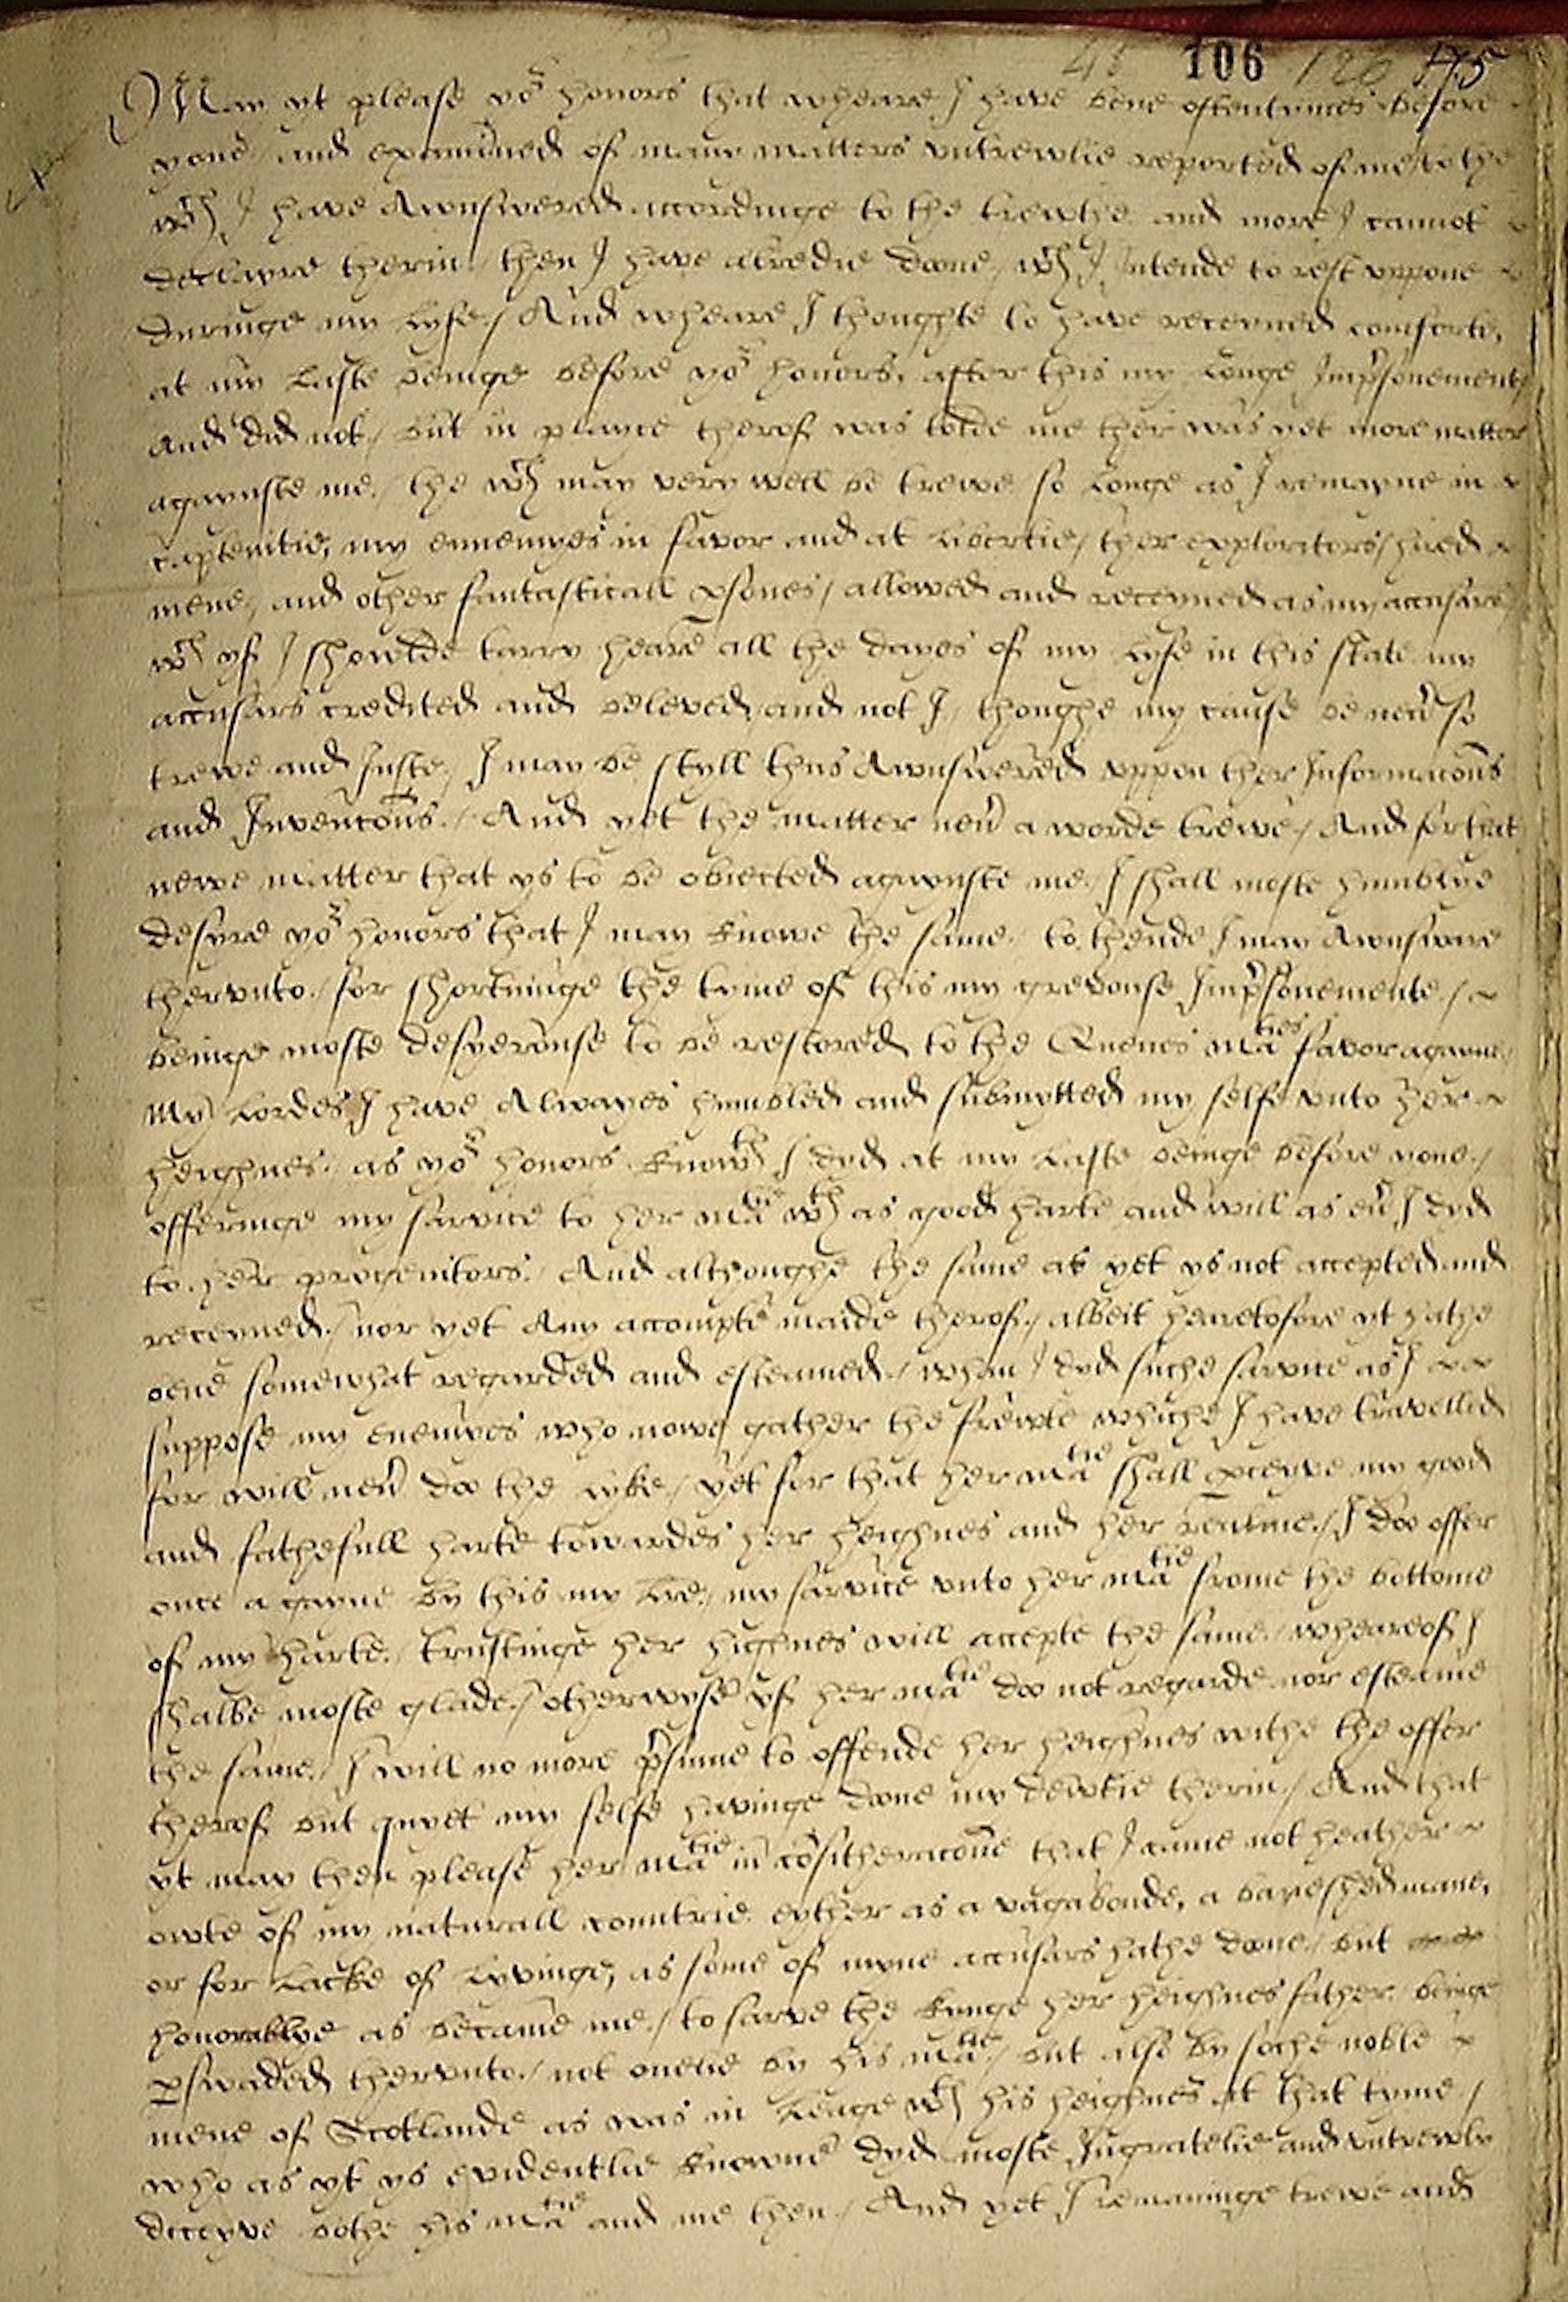 106 126 175
May yt please yor honors that wheare I have bene oftentymes before
youe, and examined of many matters untrewlie reported of me, to the
wch I have Awnswered accordinge to the trewthe and more I cannot
declayre therin, then I have alredie done, wch I intende to rest uppone
duringe my lyfe / And wheare I thoughte to have receyved comforte,
at my laste beinge before yor honors, after this my longe Imprsonement,
And did not, but in playce therof was tolde me ther was yet more matter
agaynste me, the wch may very well be trewe so longe as I remayne in
captevitie, my ennemyes in favor and at libertie, ther exploritors, hired
mene, and other fantasticall psones, allowed and receyved as my accusars
wch yf I showlde tarry heare all the dayes of my lyfe in this state my
accusars credited and beleved, and not I, thoughe my cause be nevr so
trewe and Juste, I may be styll thus Awnswered uppon ther Informacons
and Invencons, / And yet the matter nevr a worde trewe, And for that
newe matter that ys to be obiected agaynste me, I shall moste humblye
desyre yor honors that I may knowe the same, to thende I may Awnswere
therunto, for shortninge the tyme of this my grevouse Imprsonemente /
beinge moste desyerouse to be restored to the Quenes Maties favor agayne,
My Lordes I have Alwayes humbled and submytted my selfe unto her
heighnes, as yor honors knowth I dyd at my laste beinge before youe,
offeringe my sarvice to her Matie wth as good harte and will as evr I dyd
to her progenitors, And althoughe the same as yet ys not accepted and
receyved, nor yet Any accompte maide therof, albeit heretofore yt hathe
bene somewhat regarded and esteamed, whan I dyd suche sarvice as I
suppose my enemyes who nowe gather the frewte whiche I have travelled
for will nevr doo the lyke, yet for that her Matie shall pceyve my good
and fathefull harte towardes her heighnes and her realme, I doo offer
once agayne by this my lre, my sarvice unto her Matie frome the bottome
of my harte, trustinge her highnes will accepte the same, wheareof I
shalbe moste glade, otherwyse yf her Matie doo not regarde nor esteame
the same, I will no more prsume to offende her heighnes withe the offer
therof but quyet my selfe havinge done my dewtie therin, And that
yt may then please her Matie in consitheracone that I came not heather
owte of my naturall countrie eyther as a vagabonde, a baneshed mane,
or for lacke of lyvinge, as some of myne accusars hathe done, but
honorablye as became me, to sarve the kynge her heighnes father beinge
pswaded therunto, not onelie by his Matie, but also by soche noble
mene of Scotlande as was in leage wth his heighnes at that tyme,
who as yt ys evidentlie knowne dyd moste Ingratelie and untrewly
deceyve bothe his Matie and me then, And yet I remaninge trewe and